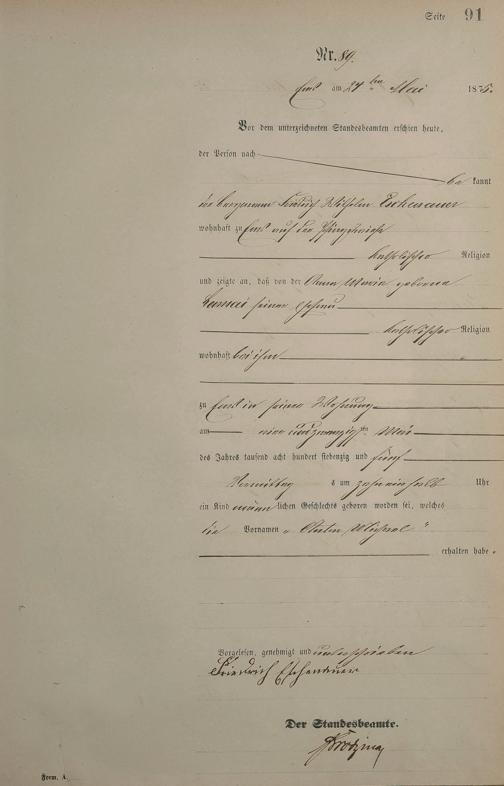 Seite 91
Nr. 89.
Ems am 24ten Mai 1875.
Vor dem unterzeichneten Standesbeamten erschien heute,
der Person nach
be kannt
der Bergmann Friedrich Wilhelm Eschenauer
wohnhaft zu Ems auf der Pfingstwiese
katholischer Religion
und zeigte an, daß von der Anna Maria geborenen
seiner Ehefrau
katholischer Religion
wohnhaft bei ihm
zu Ems in seiner Wohnung
am ein und zwanzigsten Mai
des Jahres tausend acht hundert siebenzig und fünf
Vormittag s um zehn einhalb Uhr
ein Kind männ lichen Geschlechts geboren worden sei, welches
die Vornamen „Anton Michael“
erhalten habe.
Vorgelesen, genehmigt und unterschrieben
Friedrich Eschenauer
Der Standesbeamte.
Form. A.